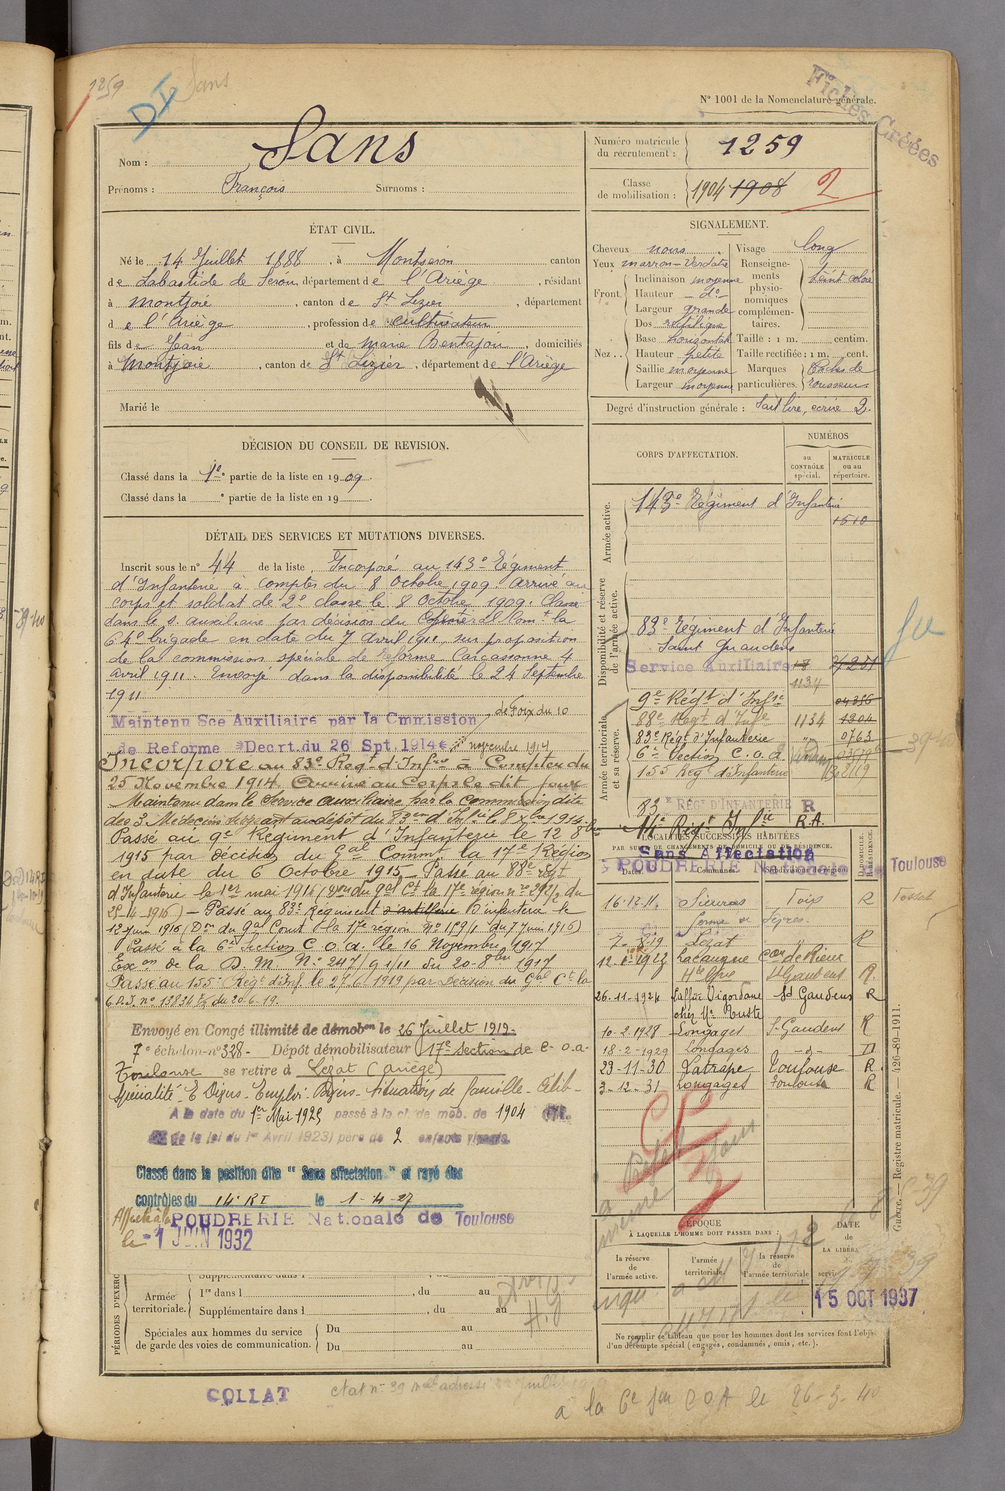 1259
DI
Sans
N° 1001 de la Nomenclature générale.
Fiches Créées
Nom : Sans
Prénoms : François Surnoms :
Numéro matricule du recrutement : 1259
Classe de mobilisation : 1904 1908 2
ÉTAT CIVIL.
Né le 14 Juillet 1888, à Montseron canton
de Labastide de Sérou, département de l'Ariège, résidant
à Montjoie, canton de St Lizier, département
de l'Ariège, profession de cultivateur
fils de Jean et de Marie Bentajou, domiciliés
à Montjoie, canton de St Lizier, département de l'Ariège
Marié le
SIGNALEMENT.
Cheveux noirs
Yeux marron-verdâtre
Front. Inclinaison moyenne
Hauteur do
Largeur grande
Nez. Dos rectiligne
Base horizontale
Hauteur petite
Saillie moyenne
Largeur moyenne
Visage long
Renseignements physionomiques complémentaires. teint coloré
Taille : 1 m. centim.
Taille rectifiée : 1 m. cent.
Marques particulières. taches de rousseur
Degré d'instruction générale : Sait lire, écrire 2.
DÉCISION DU CONSEIL DE REVISION.
Classé dans la 1e partie de la liste en 1909.
Classé dans la ° partie de la liste en 19
DÉTAIL DES SERVICES ET MUTATIONS DIVERSES.
Inscrit sous le n° 44 de la liste. Incorporé au 143e Régiment
d'Infanterie à compter du 8 Octobre 1909. Arrivé au
corps et soldat de 2e classe le 8 Octobre 1909. Classé
dans le s. auxiliaire par décision du Général Comt la
64e brigade en date du 7 Avril 1911, sur proposition
de la commission spéciale de réforme Carcassonne 4
Avril 1911. Envoyé dans la disponibilité le 24 Septembre
1911
Maintenu Sce Auxiliaire par la Cmmission de Foix du 10
de Reforme Decrt.du 26 Spt.1914 novembre 1914
Incorporé au 83e Régt d'Infie à Compter du
25 Novembre 1914. Arrivé au Corps le dit jour
Maintenu dans le Service auxiliaire par la Commission dite
des 3 Médecins au dépôt du 83e d'Infie le 8 Xbre 1914.
Passé au 9e Régiment d'Infanterie le 12 8bre
1915 par décision du Gal Commt la 17e Région
en date du 6 Octobre 1915. Passé au 88e régt
d'Infanterie le 1er mai 1916 (Don du Gal Ct la 17e région du
25-4-1916) - Passé au 83e Régiment d'artillerie d'infanterie le
12 juin 1916 (Don du Gal Comt la 17e région du 7 juin 1916)
Passé à la 6e Section C.O.A. le 16 Novembre 1917
Exon de la D.M. N° 247 du 20-8bre 1917
Passé au 155e Régt d'Inf. le 27.6.1919 par Décision du Gal Ct la
du 20.6.19.
Envoyé en Congé illimité de démobon le 26 Juillet 1919.
7e échelon - n° 328 - Dépôt démobilisateur 17e section de C.O.A.
Toulouse se retire à Lézat (Ariège)
Spécialité - Emploi - Situation de famille - Célib-
A la date du 1er Mai 1925 passé à la cl. de mob. de 1904
de la loi du 1er Avril 1923) père de 2 enfants vivants.
Classé dans la position dite "Sans affectation" et rayé des
contrôles du 14e RI le 1-4-27
Affecté à la POUDRERIE Nationale de Toulouse
le -1 JUIN 1932
CORPS D'AFFECTATION.
NUMÉROS
au CONTRÔLE spécial.
MATRICULE ou au répertoire.
Armée active.
143e Régiment d'Infanterie 1510
Disponibilité et réserve de l'armée active.
83e Régiment d'Infanterie
Saint Gaudens
Service Auxiliaire
1134
Armée territoriale et sa réserve.
9e Régt d'Infie
88e Régt d'Infie 1134 1204
83e Régt d'Infanterie 0763
6e Section C.O.A.
155 Régt d'Infanterie
83 E REGt D'INFANTERIE R
14e Régt Infie R.A.
LOCALITÉS SUCCESSIVES HABITÉES
PAR SUITE DE CHANGEMENTS DE DOMICILE OU DE RÉSIDENCE.
Sans Affectation
POUDRERIE Nationale de Toulouse
Dates. Communes. Subdivisions de région. DOMICILE RÉSIDENCE
16.12.11. Sieuras Foix R
7-8-19 Lézat R
12. 1922 Lacaugne con de Rieux
Hte Gne St Gaudens R
26.11.1924 Laffite Vigordane St Gaudens R
chez Mr
10-2-1928 Longages St Gaudens R
18-2-1929 Longages -d- D
23-11-30 Latrape Toulouse R
3-12-31 Longages Toulouse R
ÉPOQUE
À LAQUELLE L'HOMME DOIT PASSER DANS :
la réserve de l'armée active.
l'armée territoriale.
la réserve de l'armée territoriale
DATE de LA LIBÉRA
15 OCT 1937
Ne remplir ce tableau que pour les hommes dont les services font l'objet d'un décompte spécial (engagés, condamnés, omis, etc.).
PÉRIODES D'EXERC
Supplémentaire dans l
Armée territoriale. 1re dans l , du au
Supplémentaire dans l du au
Spéciales aux hommes du service de garde des voies de communication. Du au
Du au
Guerre. — Registre matricule. — 426-89-1911.
COLLAT
à la 6e Son COA le 26-3-40